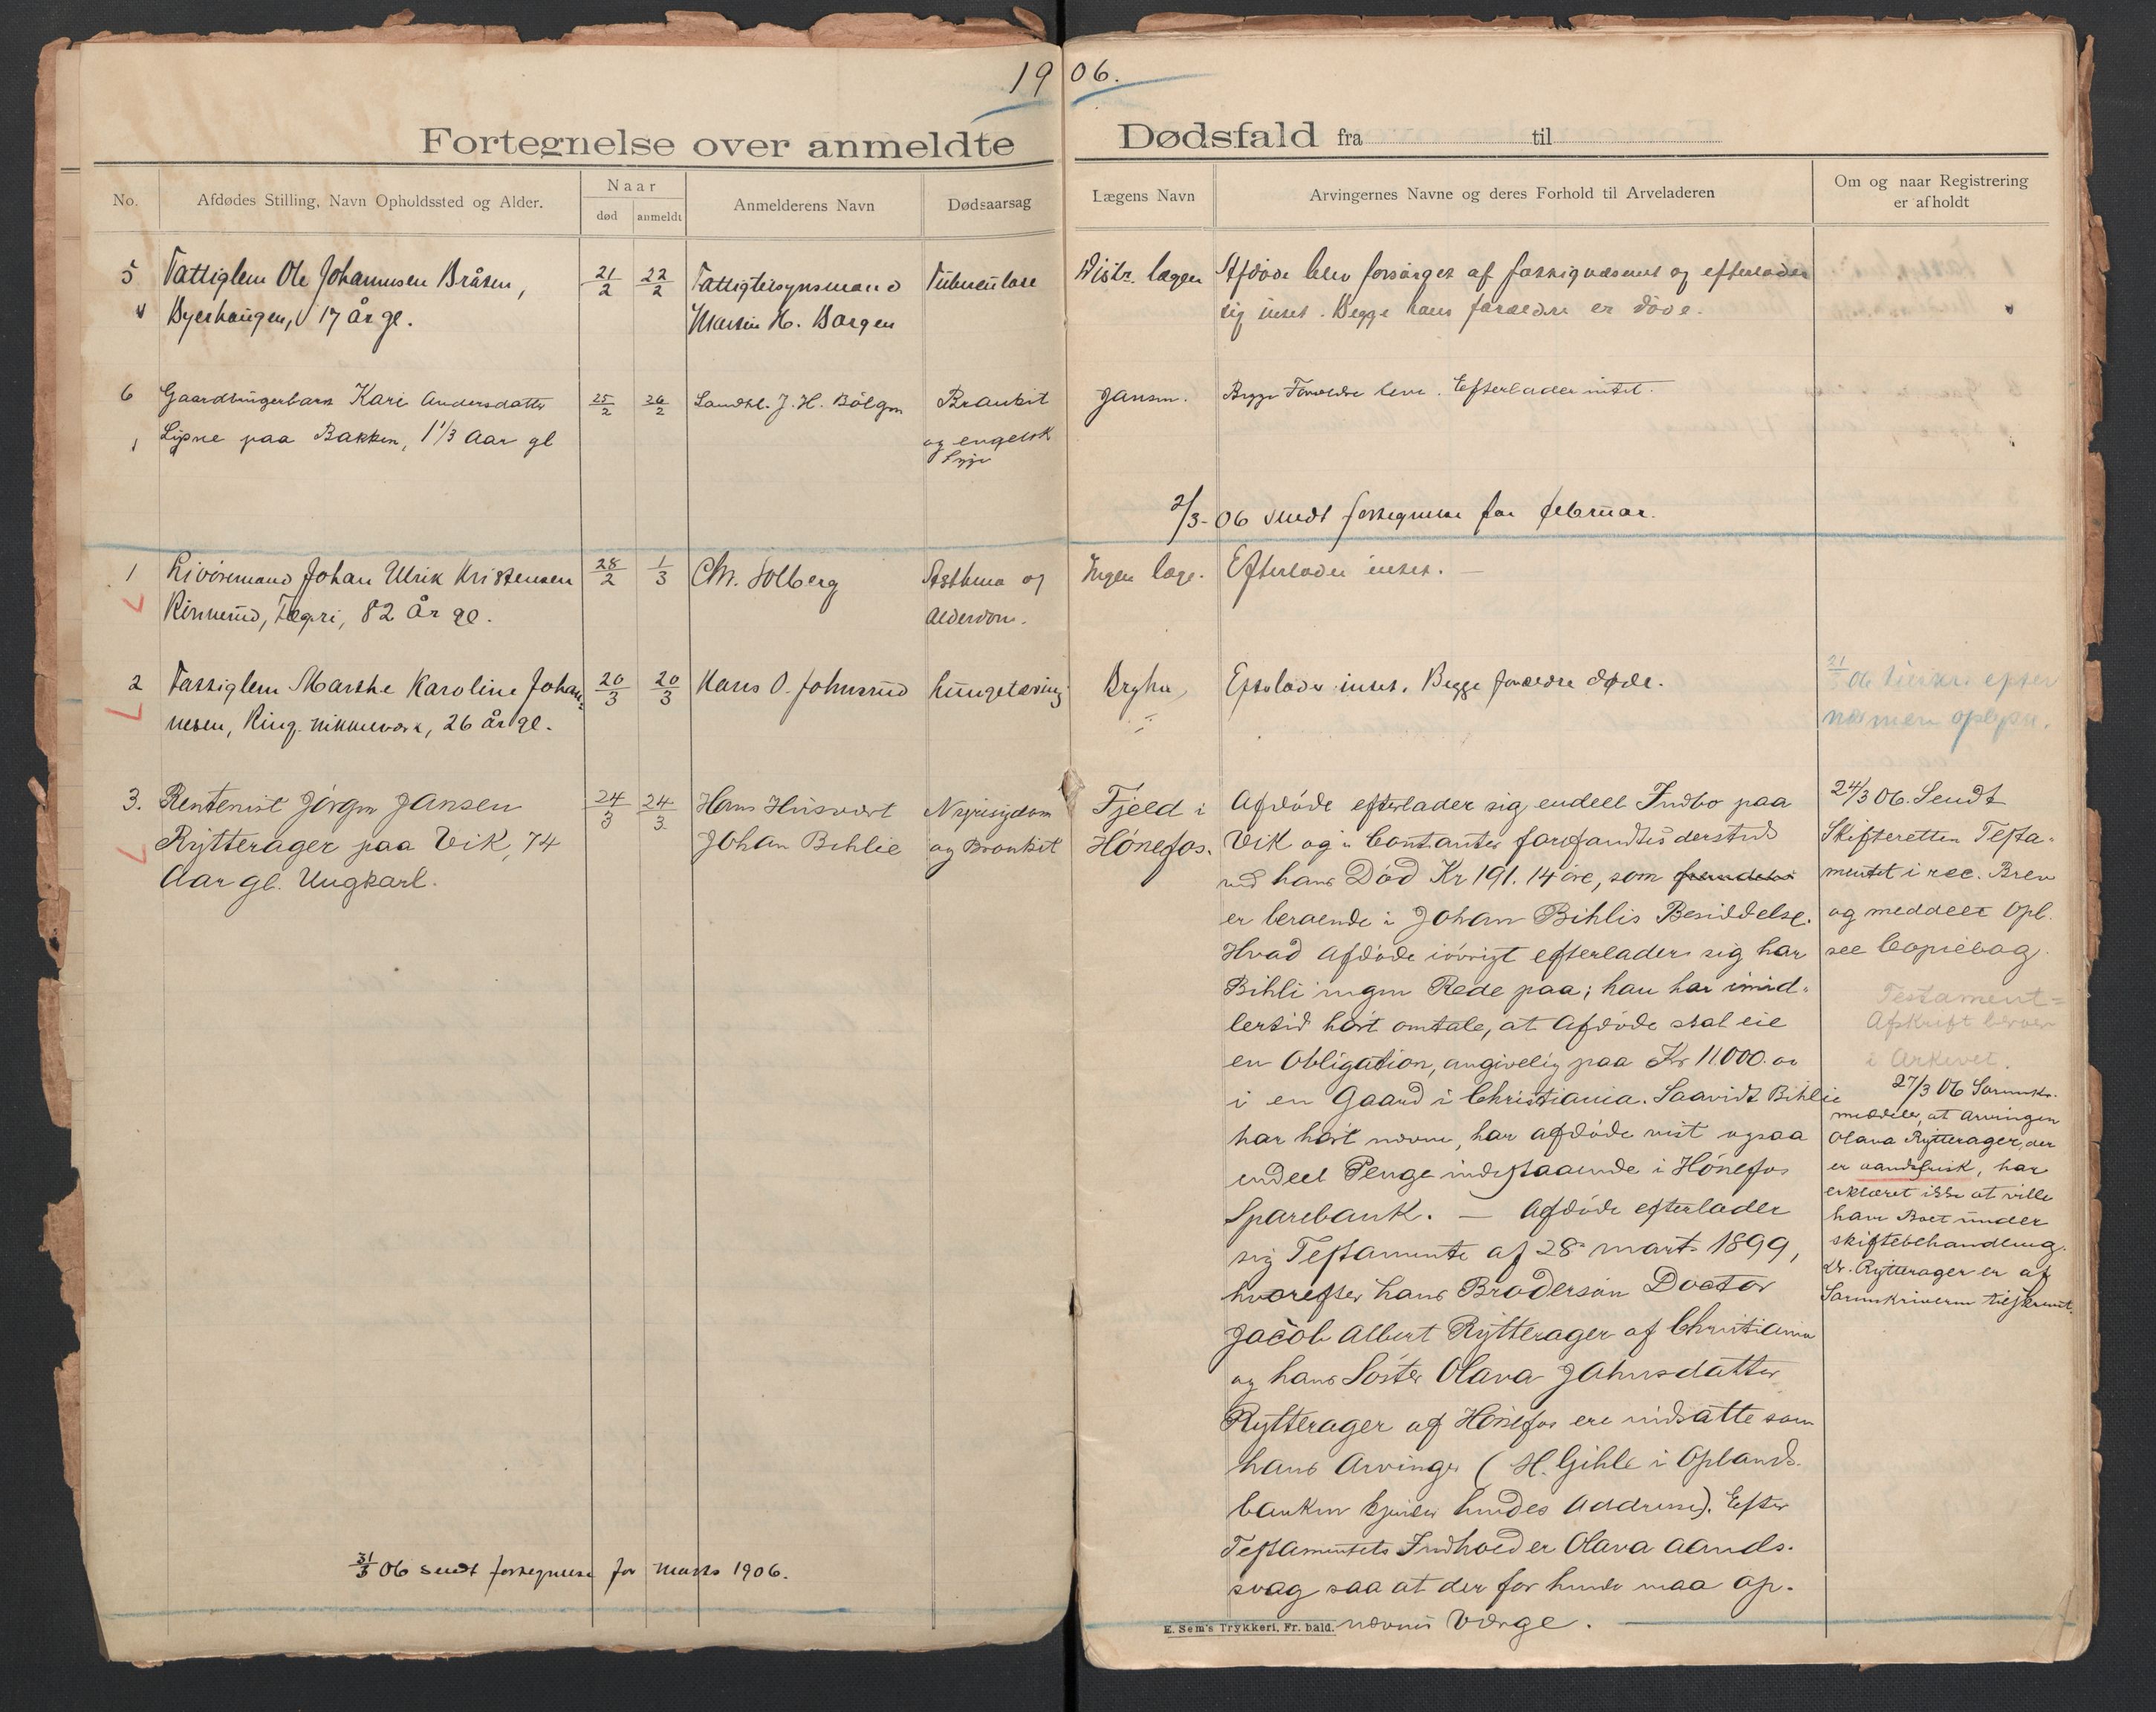 1906.
Fortegnelse over anmeldte Dødsfald fra til
No.
Afdødes Stilling, Navn Opholdssted og Alder.
Naar
død
anmeldt
Anmelderens Navn
Dødsaarsag
Lægens Navn
Arvingernes Navne og deres Forhold til Arveladeren
Om og naar Registrering
er afholdt
5 Fattiglem Ole Johannesen Bråten,
Byerhaugen, 17 år gl.
21/2 22/2
Fattigtilsynsmand
Martin H. Borgen
Tuberculose
Distr. lægen
Afdøde blev forsørget af fattigvæsenet og efterlader
sig intet. Begge hans forældre er døde.
6 Gaardbrugerbarn Kari Andersdatter
Lipne paa Bakken, 1 1/3 Aar gl
25/2 26/2
Landhl. J. H. Bølgen
Bronkit
og engelsk
Syge
Jansen.
Begge Forældre leve. Efterlader intet.
2/3-06 sendt fortegnelse for februar.
1 Livøremand Johan Ulrik Kristensen
Rinnerud, Tægri, 82 År gl.
28/2 1/3
Chr. Solberg
Asthma og
Alderdom.
Ingen læge.
Efterlader intet. —
2 Fattiglem Marthe Karoline Johan-
nesen, Ring. nikkelværk, 26 år gl.
20/3 20/3
Hans O. Johnsrud
Lungetæring
Bryhn
Efterlader intet. Begge forældre døde.
21/3 06 tilskr. efter
nærmere oplysn.
3. Rentenist Jørgen Jansen
Rytterager paa Vik, 74
Aar gl. Ungkarl.
24/3 24/3
Hans Husvært
Johan Bihlie
Nyresygdom
og Bronkit
Fjeld i
Hønefos.
Afdøde efterlader sig endeel Indbo paa
Vik og i Contanter forefandtes derstede
ved hans Død Kr 191. 14 øre, som fremdeles
er beroende i Johan Bihlis Besiddelse.
Hvad Afdøde iøvrigt efterlader sig har
Bihli ingen Rede paa; han har imid-
lertid hørt omtale, at Afdøde skal eie
en Obligation, angivelig paa Kr 11000.00
i en Gaard i Christiania. Saavidt Bihlie
har hørt nævne, har afdøde vist ogsaa
endeel Penge indestaaende i Hønefos
Sparebank. — Afdøde efterlader
sig Testamente af 28 marts 1899,
hvorefter hans Brodersøn Doctor
Jacob Albert Rytterager af Christiania
og hans Søster Olava Jahnsdatter
Rytterager af Hønefos ere indsatte som
hans Arvinger (H. Gihle i Oplands-
banken kjender hendes Addresse). Efter
Testamentets Indhold er Olava aands-
svag saa at der for hende maa op-
nævnes Værge.
24/3 06. Sendt
Skifteretten Testa-
mentet i rec. Brev
og meddeelt Opl.
see Copiebog.
Testament-
Afskrift beroer
i Arkivet.
27/3 06 Sorenskr.
meddeler, at Arvingen
Olava Rytterager, der
er aandsfrisk, har
erklæret ikke at ville
have Boet under
skiftebehandling.
Dr. Rytterager er af
Sorenskriveren tilskrevet.
31/3 06 sendt fortegnelse for marts 1906.
E. Sem's Trykkeri, Fr. hald.